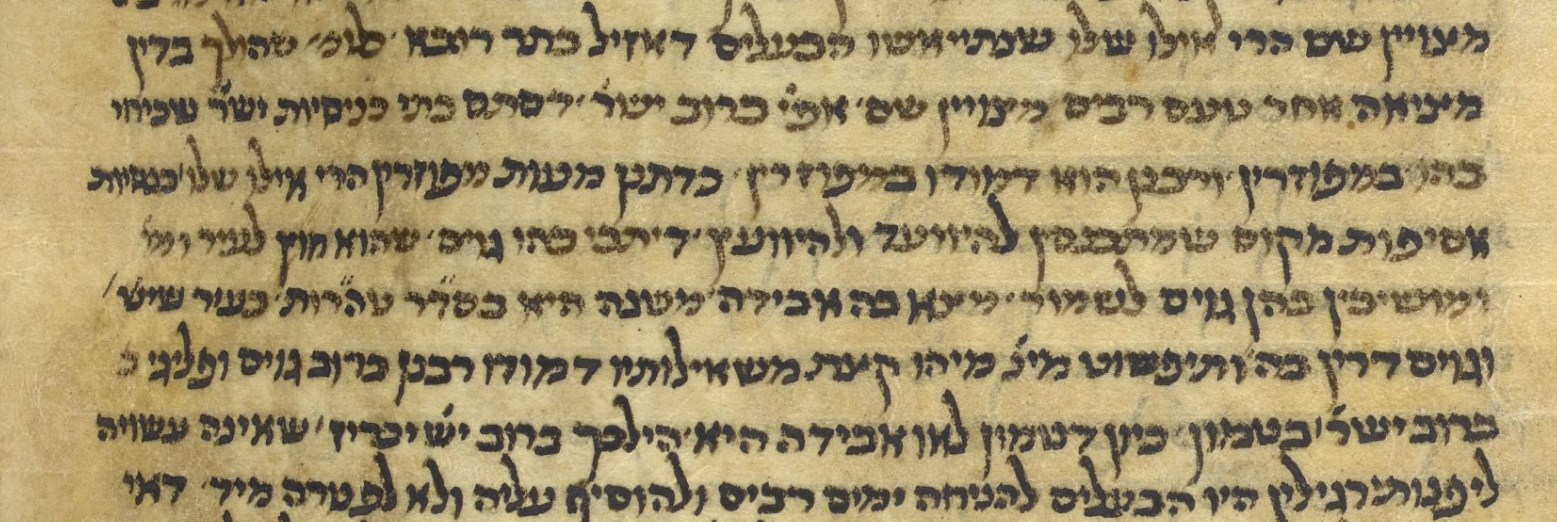 מצויין שם הרי אילו שלו שנתייאשו הבעלים דאזיל בתר רובא סומ׳ שהולך בדין
מציאה אחר טעם רבים מצויין שם׳ אפי׳ ברוב ישר׳ דסתם בתי כניסיות ישר׳ שכיחי
בהו במפוזרין ורבנן הוא דמודו במפוזרין׳ כדתנן מעות מפוזרין הרי אילו שלו׳ כנסיות
אסיפות מקום שמתכנסין להיוועד ולהיוועץ׳ דיתבי בהו גוים׳ שהוא חוץ לעיר ומ׳
ומושיבין בהן גוים לשמור׳ מצא בה אבידה׳ משנה היא בסדר טהרות׳ בעיר שיש׳
וגוים דרין בה׳ ותיפשוט מינ׳ מיהו קצת משאילותיו דמודו רבנן ברוב גוים ופליגי
ברוב ישר׳ בטמון׳ כיון דטמון לאו אבידה היא׳ הילכך ברוב יש׳ יכריז׳ שאינה עשויה
ליפנות׳ רגילין היו הבעלים להניחה ימים רבים ולהוסיף עליה ולא לפטרה מיד׳ דאי